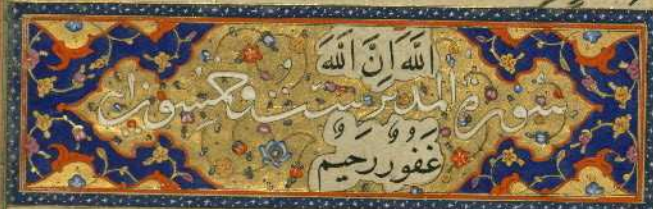 اللَّهَ إِنَّ اللَّهَ
سورة المدثر ست وخمسون اية
غَفُورٌ رَحِيمٌ